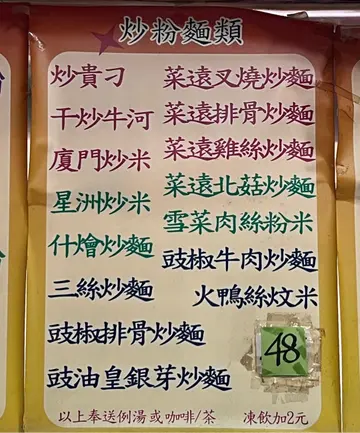 炒粉麵類
炒貴刁
干炒牛河
廈門炒米
星洲炒米
什燴炒麵
三絲炒麵
豉椒排骨炒麵
豉油皇銀芽炒麵
菜遠叉燒炒麵
菜遠排骨炒麵
菜遠雞絲炒麵
菜遠北菇炒麵
雪菜肉絲粉米
豉椒牛肉炒麵
火鴨絲炆米
48
以上奉送例湯或咖啡/茶 凍飲加2元